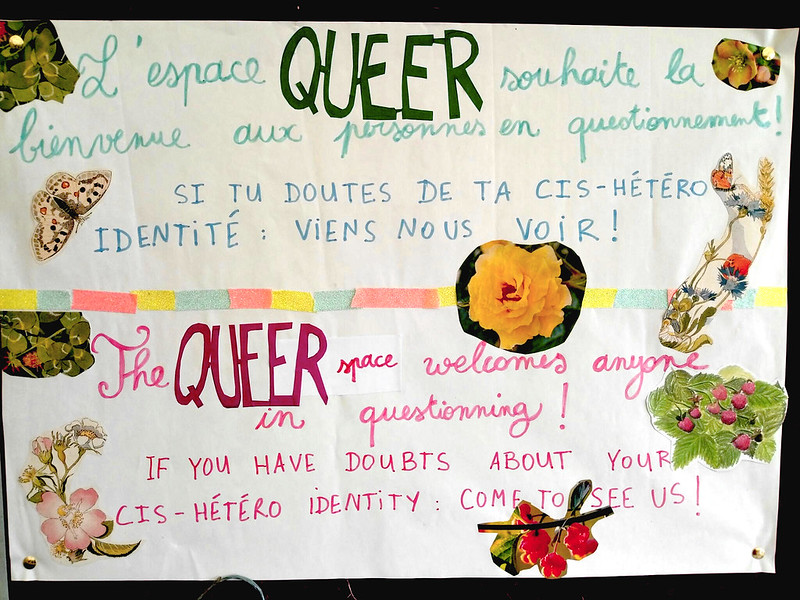 L'espace QUEER souhaite la
bienvenue aux personnes en questionnement!
SI TU DOUTES DE TA CIS-HÉTÉRO
IDENTITÉ : VIENS NOUS VOIR !
The QUEER space welcomes anyone
in questionning !
IF YOU HAVE DOUBTS ABOUT YOUR
CIS-HÉTÉRO IDENTITY : COME TO SEE US !